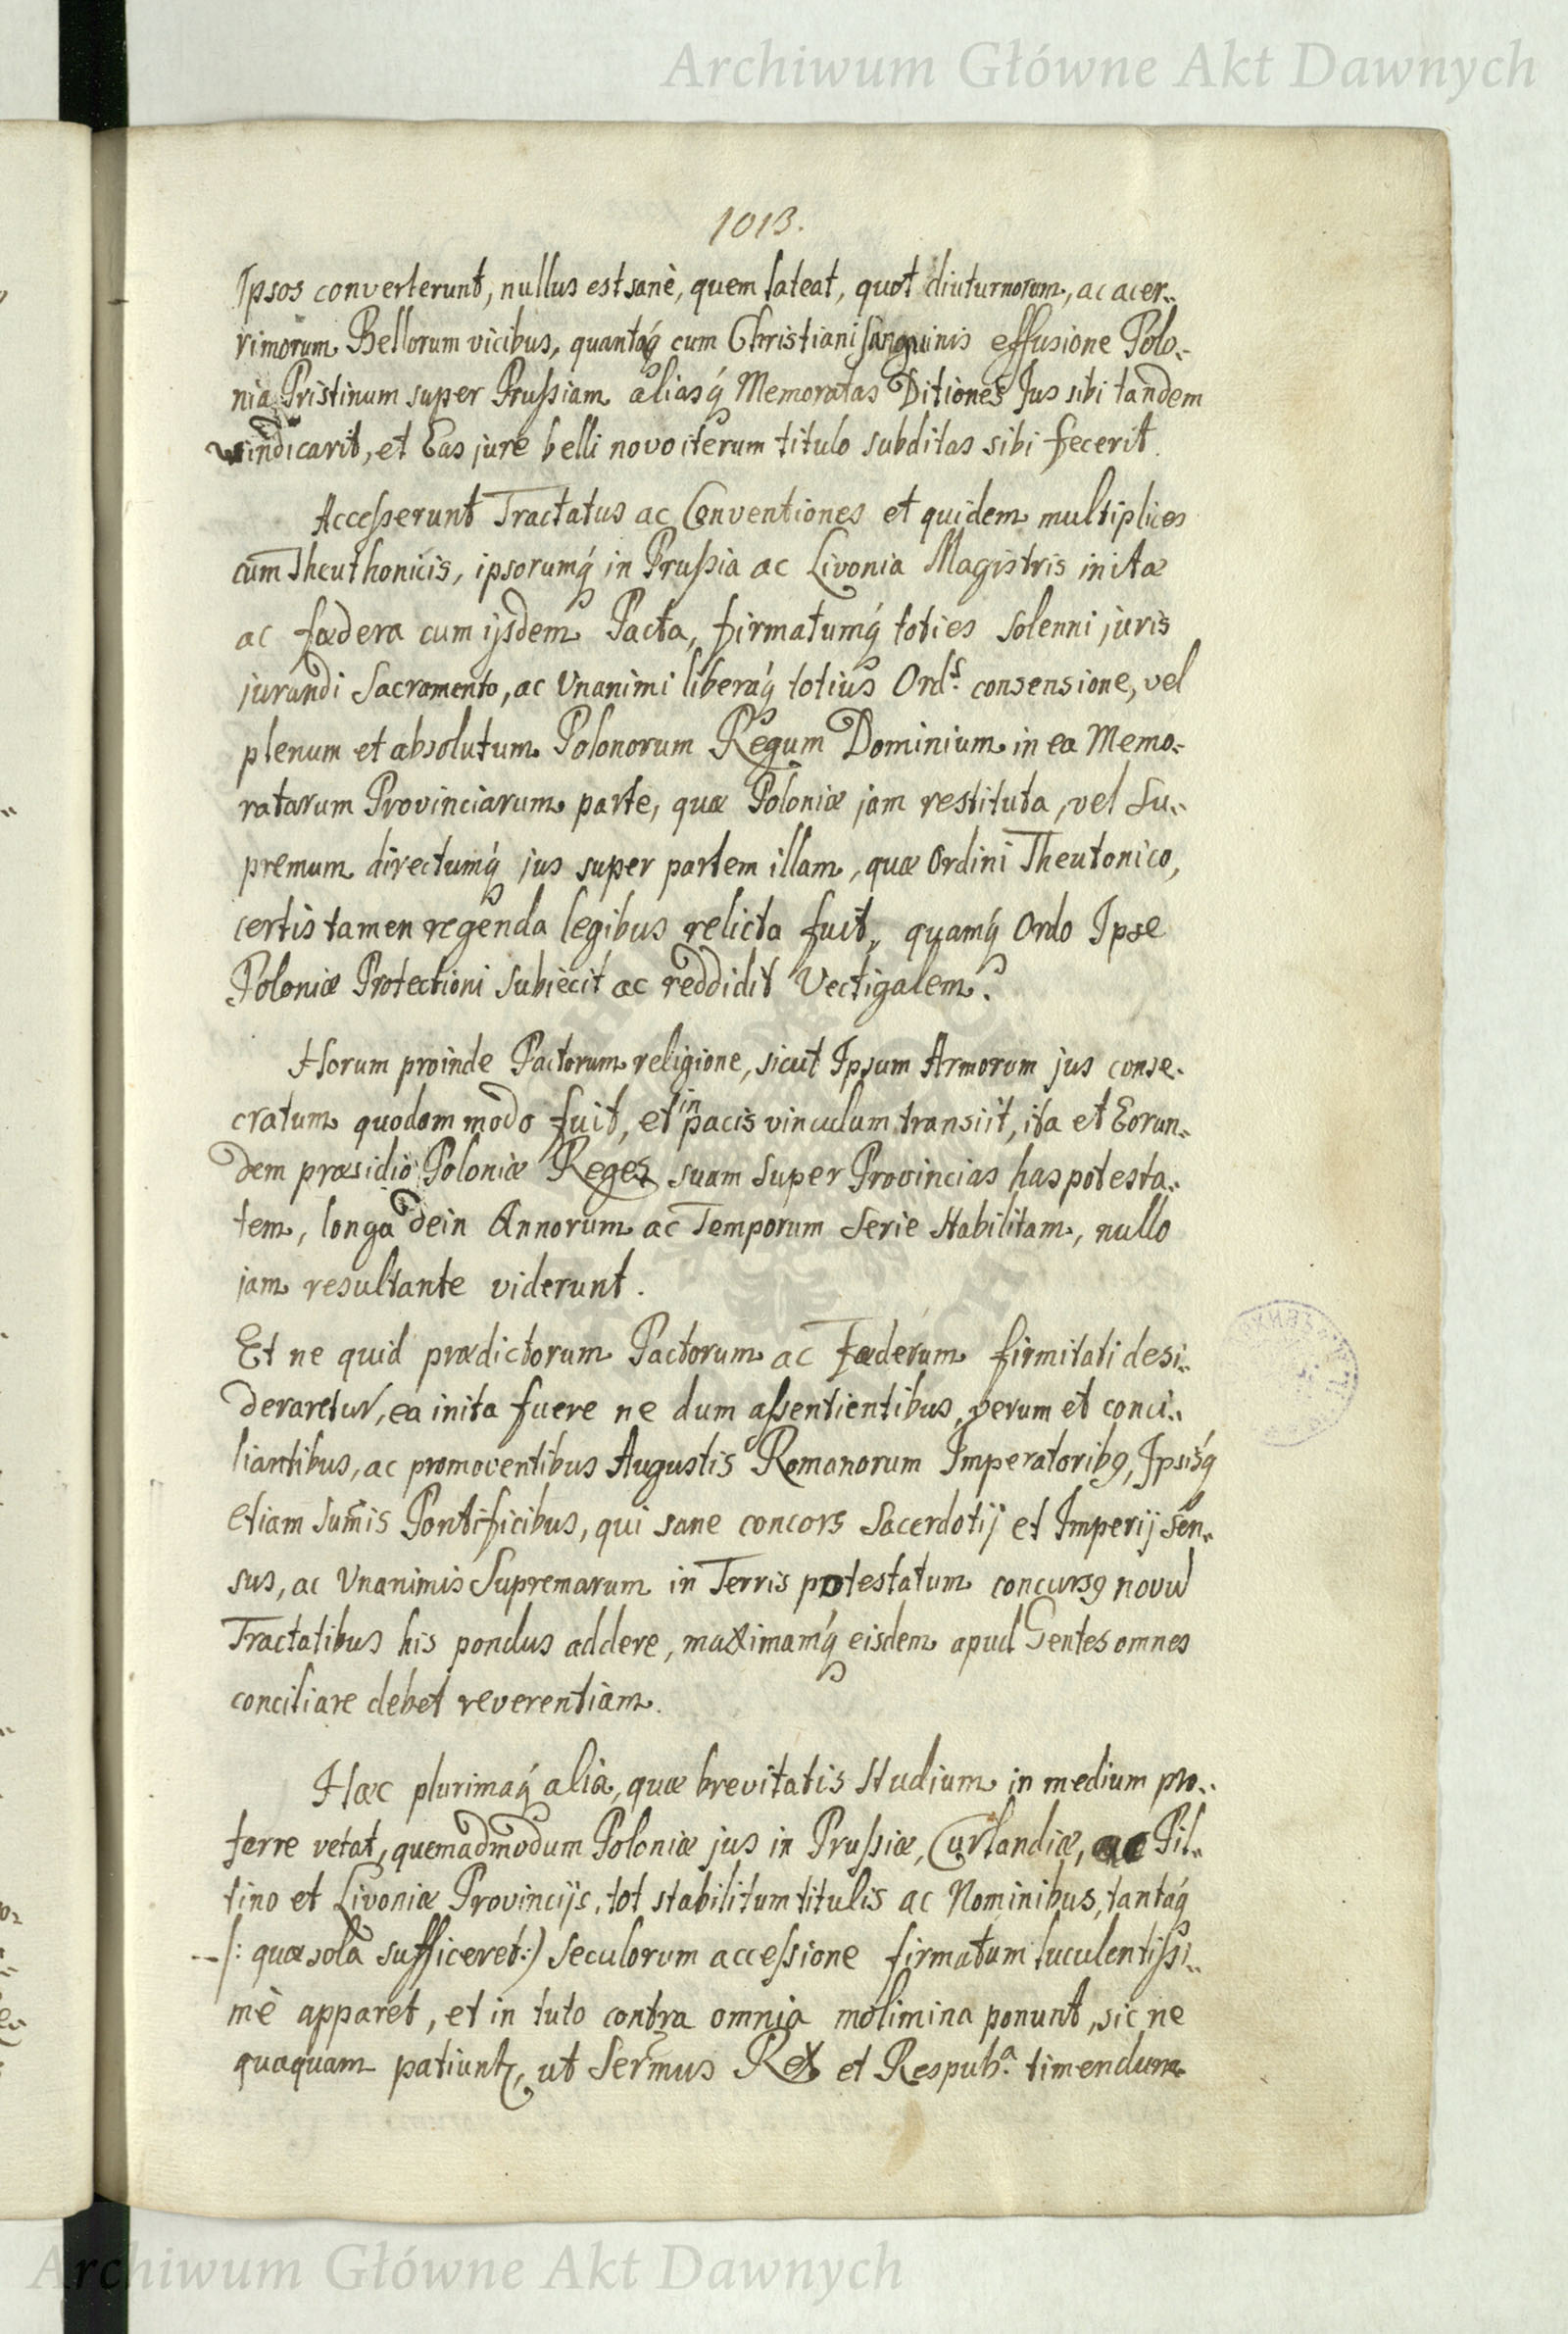 Archiwum Główne Akt Dawnych
1013.
Ipsos converterunt, nullus est sanè, quem lateat, quot diuturnorum, ac acer„
rimorum Bellorum vicibus, quantaq́ cum Christiani sanguinis effusione Polo„
nia Pristinum super Prussiam aliasq́ Memoratas Ditiones Jus sibi tandem
vindicarit, et Eas jure belli novo iterum titulo subditas sibi fecerit.
Accesserunt Tractatus ac Conventiones et quidem multiplices
cum Theuthonicis, ipsorumq́ in Prussia ac Livonia Magistris initæ
ac fædera cum ijsdem Pacta, firmatumq́ toties solenni juris
jurandi Sacramento, ac Unanimi liberaq́ totius Ord.s consensione, vel
plenum et absolutum Polonorum Regum Dominium in ea Memo„
ratarum Provinciarum parte, quæ Poloniæ jam restituta, vel Su„
premum directumq́ jus super partem illam, quæ Ordini Theutonico,
certis tamen regenda legibus relicta fuit, quamq́ Ordo Ipse
Poloniæ Protectioni subiecit ac reddidit Vectigalem.
Horum proinde Pactorum religione, sicut Ipsum Armorum jus conse„
cratum quodammodo fuit, et in pacis vinculum transiit, ita et Eorun„
dem præsidio Poloniæ Reges suam super Provincias has potesta„
tem, longa dein Annorum ac Temporum Serie stabilitam, nullo
jam resultante viderunt.
Et ne quid prædictorum Pactorum ac Fæderum firmitati desi„
deraretur, ea inita fuere ne dum assentientibus, verum et conci„
liantibus, ac promoventibus Augustis Romanorum Imperatorib9, Ipsisq́
etiam Sum̃is Pontificibus, qui sane concors Sacerdotij et Imperij sen„
sus, ac Unanimis Supremarum in Terris potestatum concurs9 novũ
Tractatibus his pondus addere, maximamq́ eisdem apud Gentes omnes
conciliare debet reverentiam.
Hæc plurimaq́ alia, quæ brevitatis studium in medium pro„
ferre vetat, quemadmodum Poloniæ jus in Prussiæ, Curlandiæ, ac Pil„
tino et Livoniæ Provincijs, tot stabilitum titulis ac Nominibus, tantaq́
/: quæ sola sufficeret :/ seculorum accessione firmatum luculentissi„
mè apparet, et in tuto contra omnia molimina ponunt, sic ne
quaquam patiunt̃, ut Ser̃mus Rex et Respub.a timendum
Archiwum Główne Akt Dawnych